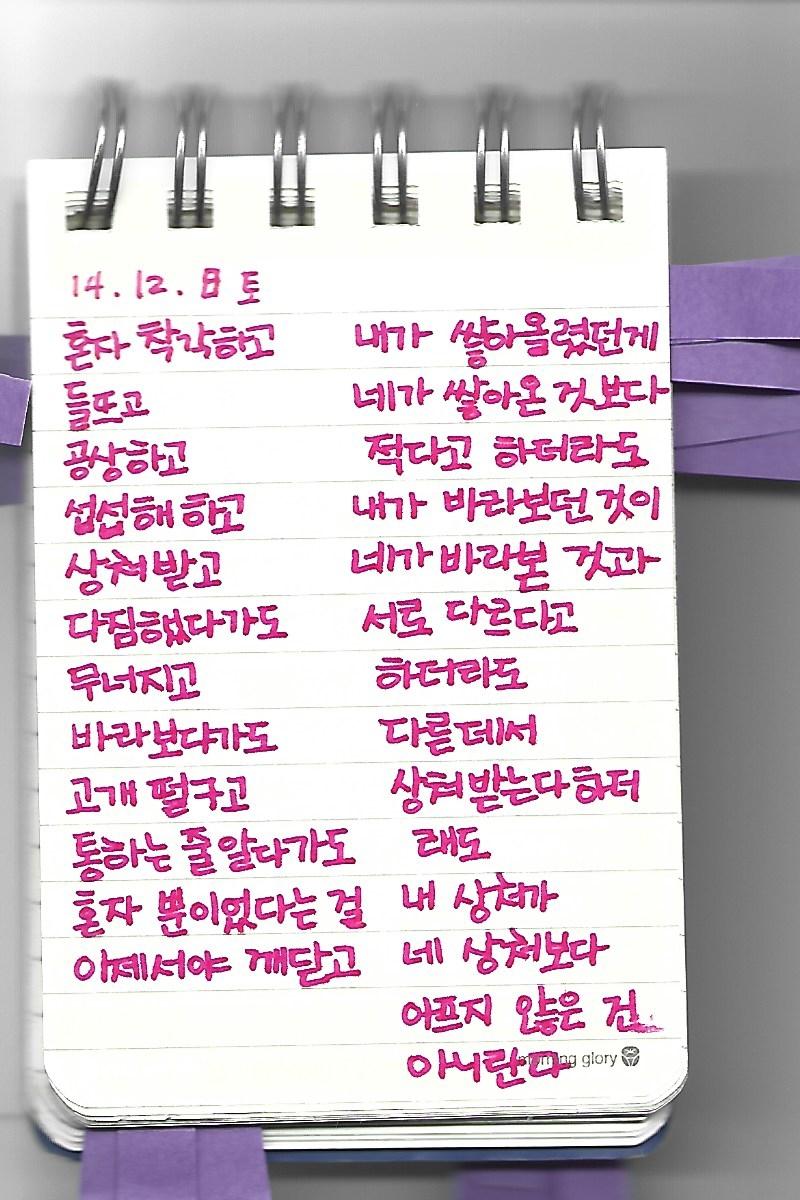 14.12. 토
혼자 착각하고
들뜨고
공상하고
섭섭해 하고
상처받고
다짐했다가도
무너지고
바라보다가도
고개 떨구고
통하는 줄 알다가도
혼자 뿐이었다는 걸
이제서야 깨닫고
내가 쌓아올렸던게
네가 쌓아온 것보다
적다고 하더라도
내가 바라보던 것이
네가 바라본 것과
서로 다르다고
하더라도
다른데서
상처받는다 하더
래도
내 상처가
네 상처보다
아프지 않은 건
아니란다
morning glory